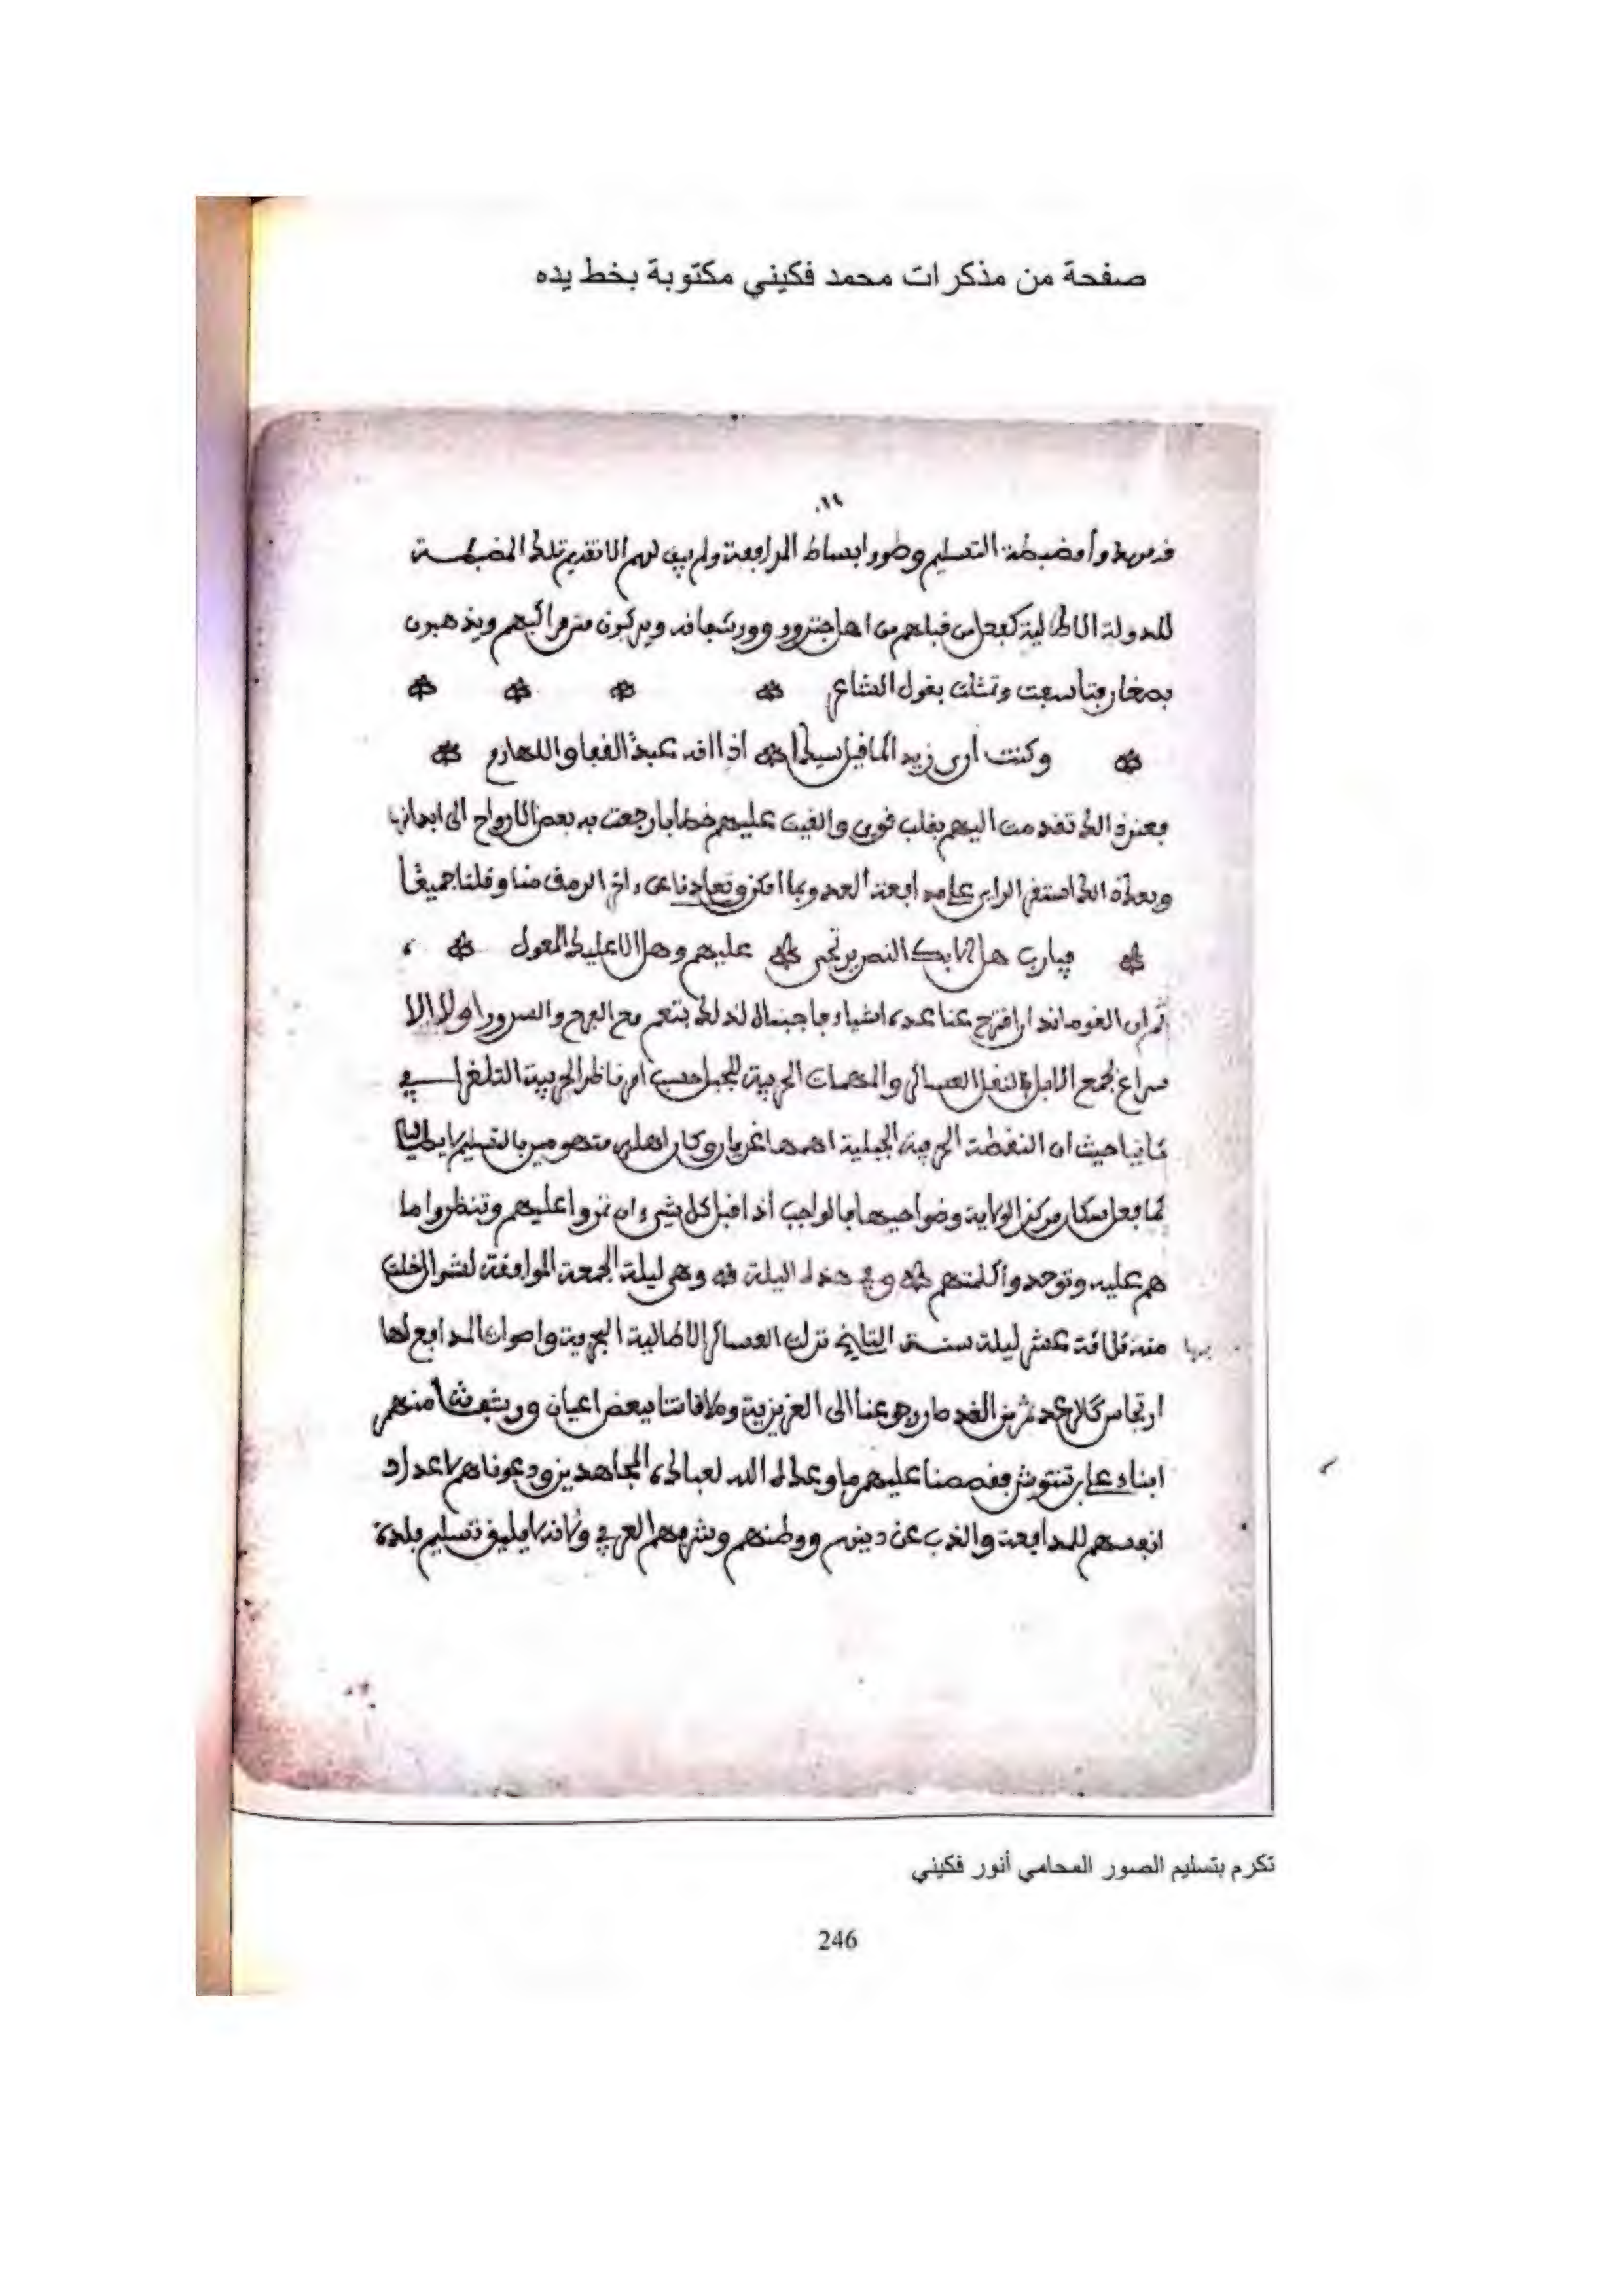 صفحة من مذكرات محمد فكيني مكتوبة بخط يده
وأمضبطة التسليم وطووا بساط المدافعة ولم يبق لهم الا تقديم تلك المضبطة
للدولة الاطالية كفعل من قبلهم من اهل جنزور وورشفانه ويركبون متن مراكبهم ويذهبون
وتمثلت بقول الشاعر
وكنت أرى زيدا كما قيل سيدا اذا انه عبد القفا واللهازم
فعند ذلك تقدمت اليهم بقلب قوي والقيت عليهم خطابا رجعت به بعض الارواح الى ابدانها
وبعد ذلك استقر الراي على مدافعة العدو بما امكن وتعاهدنا على داخر الرمق منا وقلنا جميعا
فيارب هل الا بك النصر يرتجى عليهم وهل الا عليك المعول
ثم ان القوماندار اقترح عنا عدة اشياء فاجبناه لذلك بنعم مع الفرح والسرور اولا الا
سراع لجمع الابل لنقل العساكر والمهمات الحربية للجبل حسب امر ناظر الحربية التلغرافي
ثانيا حيث ان النقطة الحربية الجبلية اهمها غريان وكان اهله متهومين بالتسليم لايطاليا
كما فعل سكان مركز الولاية وضواحيها فالواجب أذا قبل كل شيء ان تمروا عليهم وتنظروا ما
هم عليه وتوحدوا كلمتهم وفي هذه اليلة وهي ليلة الجمعة الموافقة لشوال الخلت
منه ثلاثة عشر ليلة سنة التاريخ نزلت العساكر الاطالية البحرية واصوات المدافع لها
ارتجاس كالرعد ثم من الغد صار رجوعنا الى العزيزية وملاقاتنا ببعض اعيان ورشفانة منهم
ابناء علي تنتوش فقصصنا عليهم ما وعد الله لعباده المجاهدين ودعوناهم لاعداد
انفسهم للمدافعة والذب عن دينهم ووطنهم وشرفهم العربي ولانه لا يليق تسليم بلدة
تكرم بتسليم الصور المحامي أنور فكيني
246